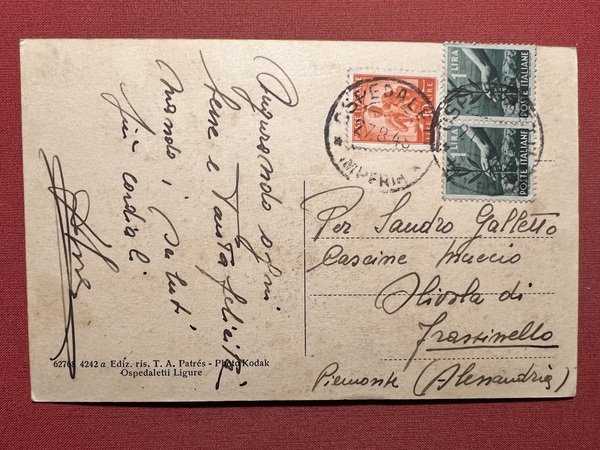 Augurando ogni
bene e tanta felicità
mando i saluti
più cordiali
1 LIRA
POSTE ITALIANE
1 LIRA
POSTE ITALIANE
OSPEDALETTI
27.8.4
IMPERIA
Per Sandro Galletto
Cascine
Olivola di
Frassinello
Piemonte (Alessandria)
4242 a Ediz. ris. T. A. Patrés - Photo Kodak
Ospedaletti Ligure